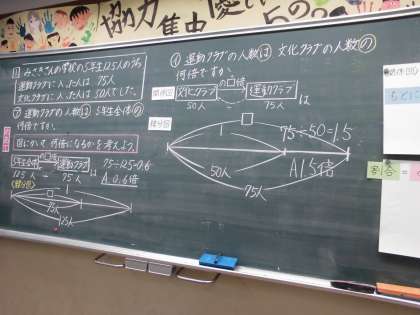 協力 集中
① みさきさんの学校の5年生125人のうち
運動クラブに入った人は 75人
文化クラブに入った人は50人でした。
⑦ 運動クラブの人数は 5年生全体の
何倍ですか。
図にかいて 何倍になるかを考えよう。
の□倍
5年生全体 運動クラブ
125人 75人
75÷125=0.6
A 0.6倍
線分図
□
1
75人
125人
④ 運動クラブの人数は 文化クラブの人数の
何倍ですか。
関係図
の□倍
文化クラブ 運動クラブ は
50人 75人
線分図
□
1
50人
75人
75÷50=1.5
A 1.5倍
もとに
割合=